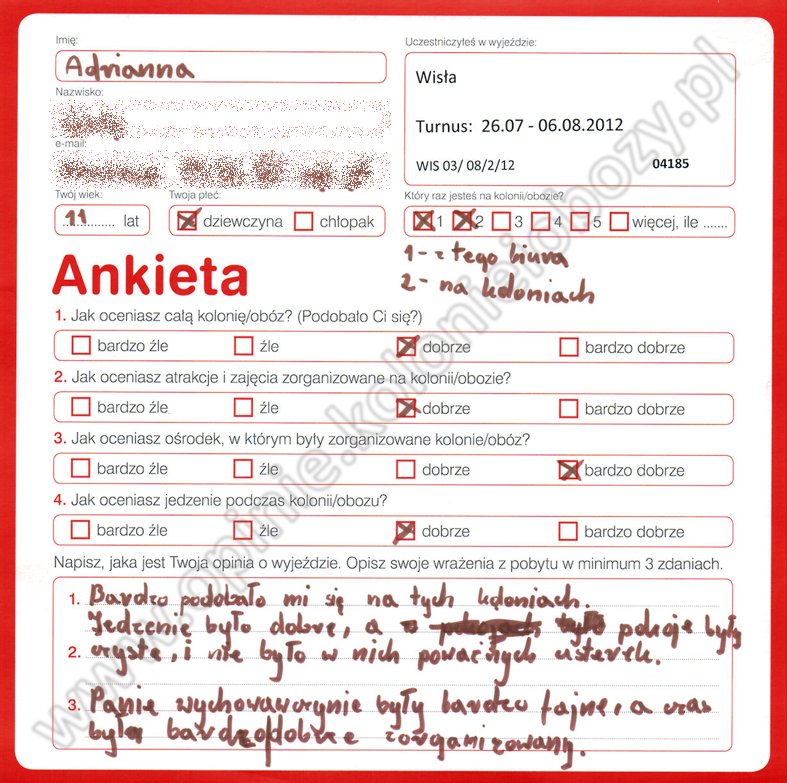 Imię:
Adrianna
Nazwisko:
e-mail:
Twój wiek:
11 lat
Twoja płeć:
dziewczyna chłopak
Uczestniczyłeś w wyjeździe:
Wisła
Turnus: 26.07 - 06.08.2012
WIS 03/ 08/2/12 04185
Który raz jesteś na kolonii/obozie?
1 2 3 4 5 więcej, ile .......
1 - z tego biura
2 - na koloniach
Ankieta
1. Jak oceniasz całą kolonię/obóz? (Podobało Ci się?)
bardzo źle źle dobrze bardzo dobrze
2. Jak oceniasz atrakcje i zajęcia zorganizowane na kolonii/obozie?
bardzo źle źle dobrze bardzo dobrze
3. Jak oceniasz ośrodek, w którym były zorganizowane kolonie/obóz?
bardzo źle źle dobrze bardzo dobrze
4. Jak oceniasz jedzenie podczas kolonii/obozu?
bardzo źle źle dobrze bardzo dobrze
Napisz, jaka jest Twoja opinia o wyjeździe. Opisz swoje wrażenia z pobytu w minimum 3 zdaniach.
1. Bardzo podobało mi się na tych koloniach.
Jedzenie było dobre, a pokoje były
2. czyste, i nie było w nich poważnych usterek.
3. Panie wychowawczynie były bardzo fajne, a czas
był bardzo dobrze zorganizowany.
www.opinie.kolonieiobozy.pl